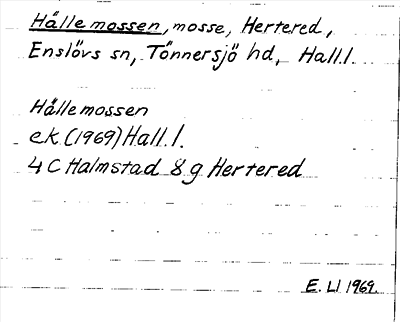 Hälle mossen, mosse, Hertered,
Enslövs sn, Tönnersjö hd, Hall.l.
Hällemossen
ek. (1969) Hall.l.
4 C Halmstad 8 g Hertered
E. Ll 1969.